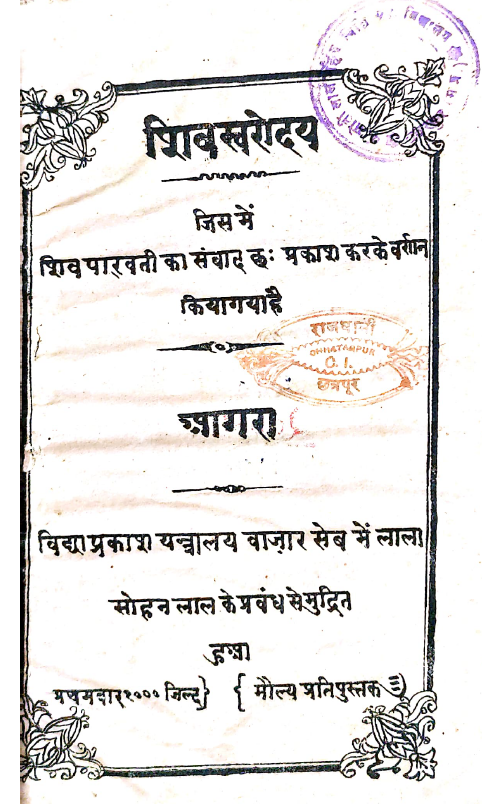 शिवस्वरोदय
जिस में
शिव पारवती का संवाद छः प्रकाश करके वर्णन
किया गया है
राजधानी
CHHATARPUR
C. I.
छत्रपूर
आगरा
विद्याप्रकाश यन्त्रालय वाज़ार सेव में लाला
सोहन लाल के प्रवंध से मुद्रित
हुआ
प्रथमवार १००० जिल्द} { मौल्य प्रतिपुस्तक